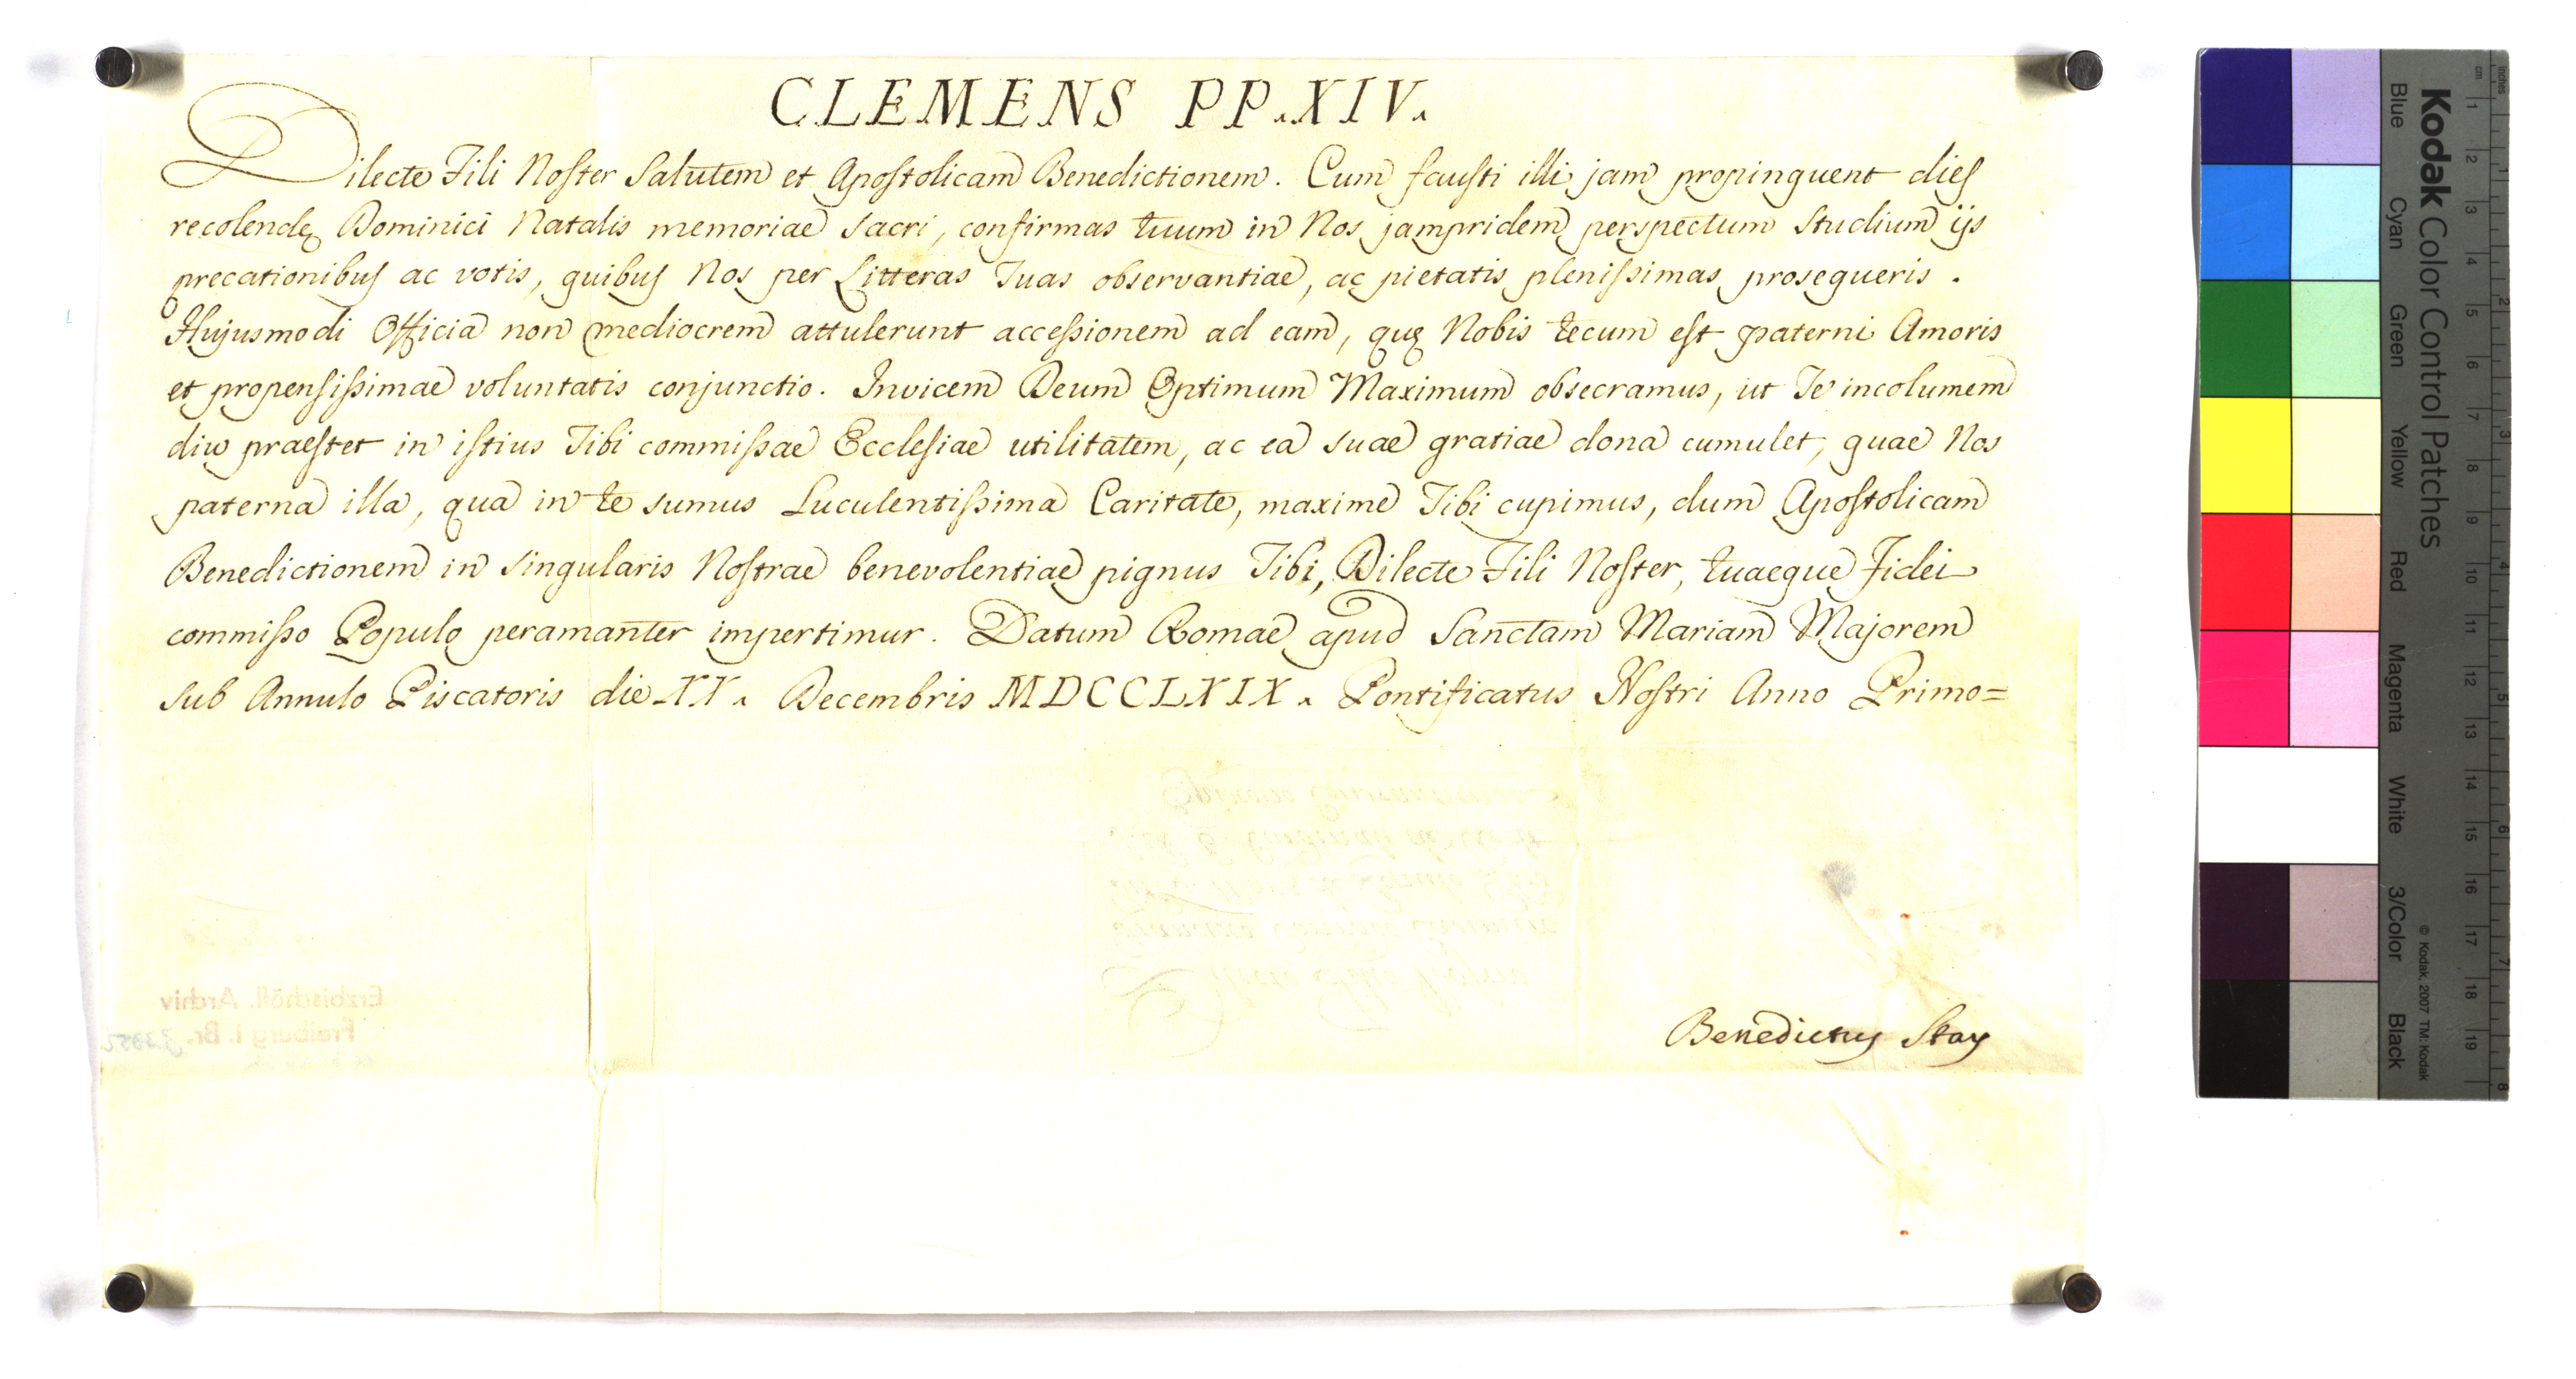 CLEMENS PP. XIV.
Dilecte Fili Noſter Salutem et Apoſtolicam Benedictionem. Cum fauſti illi jam propinquent dieſ
recolendę Dominici Natalis memoriae sacri, confirmas tuum in Nos jampridem perspectum Studium ijs
precationibuſ ac votis, quibuſ Nos per Litteras Tuas observantiae, ac pietatis pleniſsimas prosequeris.
Hujusmodi Officia non mediocrem attulerunt acceſsionem ad eam, quę Nobis tecum eſt paterni Amoris
et propenſiſsimae voluntatis conjunctio. Invicem Deum Optimum Maximum obsecramus, ut Te incolumem
diu praeſtet in iſtius Tibi commiſsae Eccleſiae utilitatem, ac ea suae gratiae dona cumulet, quae Nos
paterna illa, qua in te sumus Luculentiſsima Caritate, maxime Tibi cupimus, dum Apoſtolicam
Benedictionem in singularis Noſtrae benevolentiae pignus Tibi, Dilecte Fili Noſter, tuaeque Fidei
commiſso Populo peramanter impertimur. Datum Romae apud Sanctam Mariam Majorem
sub Annulo Piscatoris die XX. Decembris MDCCLXIX. Pontificatus Noſtri Anno Primo=
Benedictus Stay
Erzbischöfl. Archiv
Freiburg i. Br.
Kodak Color Control Patches
Blue Cyan Green Yellow Red Magenta White 3/Color Black
© Kodak, 2007 TM: Kodak
cm 1 2 3 4 5 6 7 8 9 10 11 12 13 14 15 16 17 18 19
inches 1 2 3 4 5 6 7 8